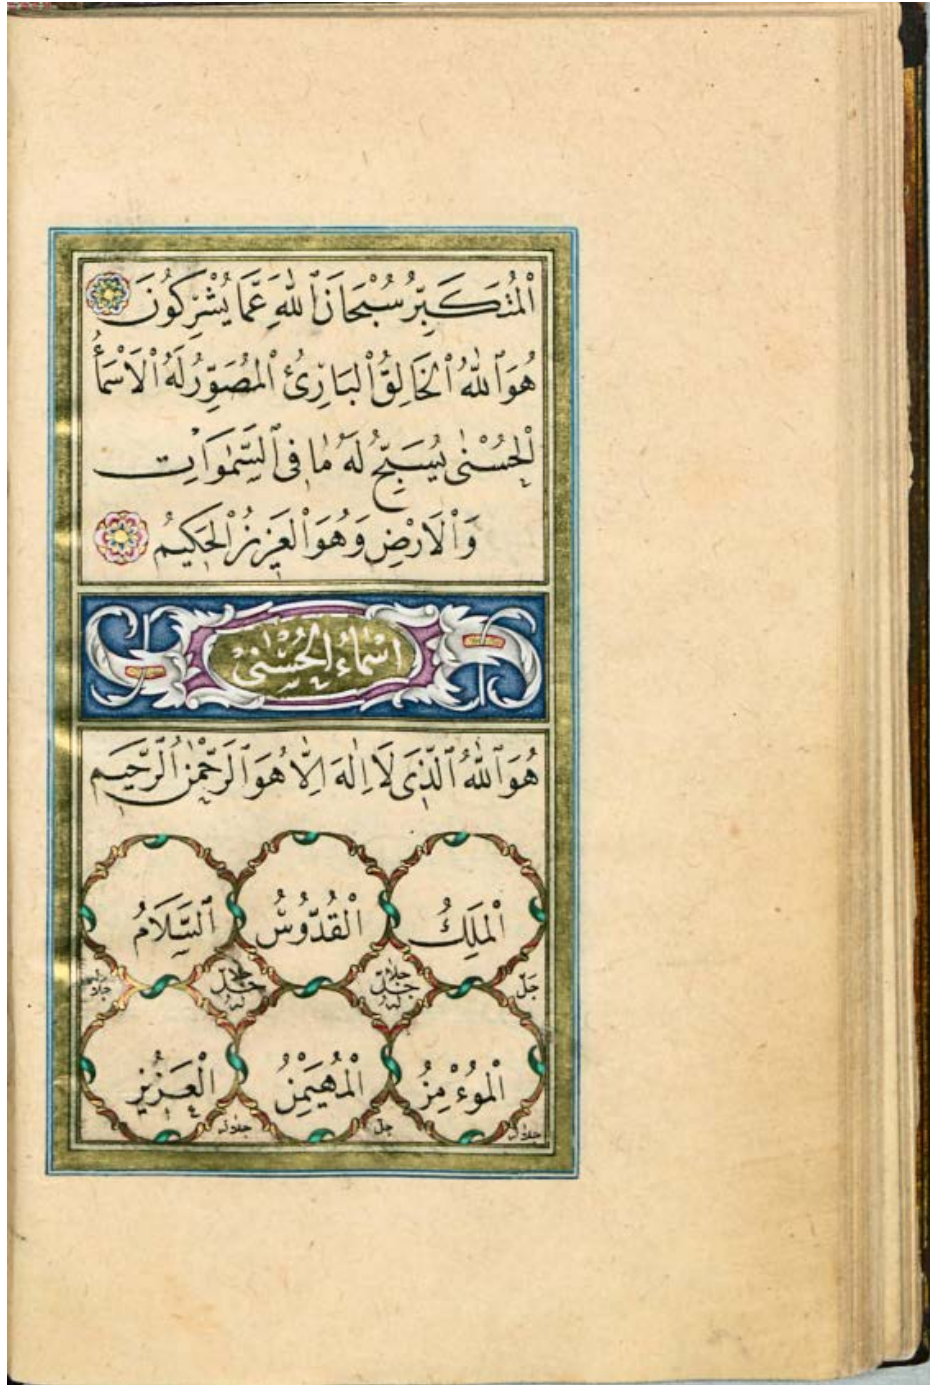 اَلْمُتَكَبِّرُ سُبْحَانَ ٱللّٰهِ عَمَّا يُشْرِكُونَ
هُوَ ٱللّٰهُ ٱلْخَالِقُ ٱلْبَارِئُ ٱلْمُصَوِّرُ لَهُ ٱلْاَسْمَٓاءُ
ٱلْحُسْنٰى يُسَبِّحُ لَهُ مَا فِى ٱلسَّمٰوَاتِ
وَٱلْاَرْضِ وَهُوَ ٱلْعَزِيزُ ٱلْحَكِيمُ
اَسْمَاءُ الْحُسْنٰى
هُوَ ٱللّٰهُ ٱلَّذِى لَا اِلٰهَ اِلَّا هُوَ ٱلرَّحْمٰنُ ٱلرَّحِيمُ
اَلْمَلِكُ اَلْقُدُّوسُ اَلسَّلَامُ
جَلّ جَلّ جلاله جَلّ جلاله جلاله
اَلْمُؤْمِنُ اَلْمُهَيْمِنُ اَلْعَزِيزُ
جلاله جل جلاله